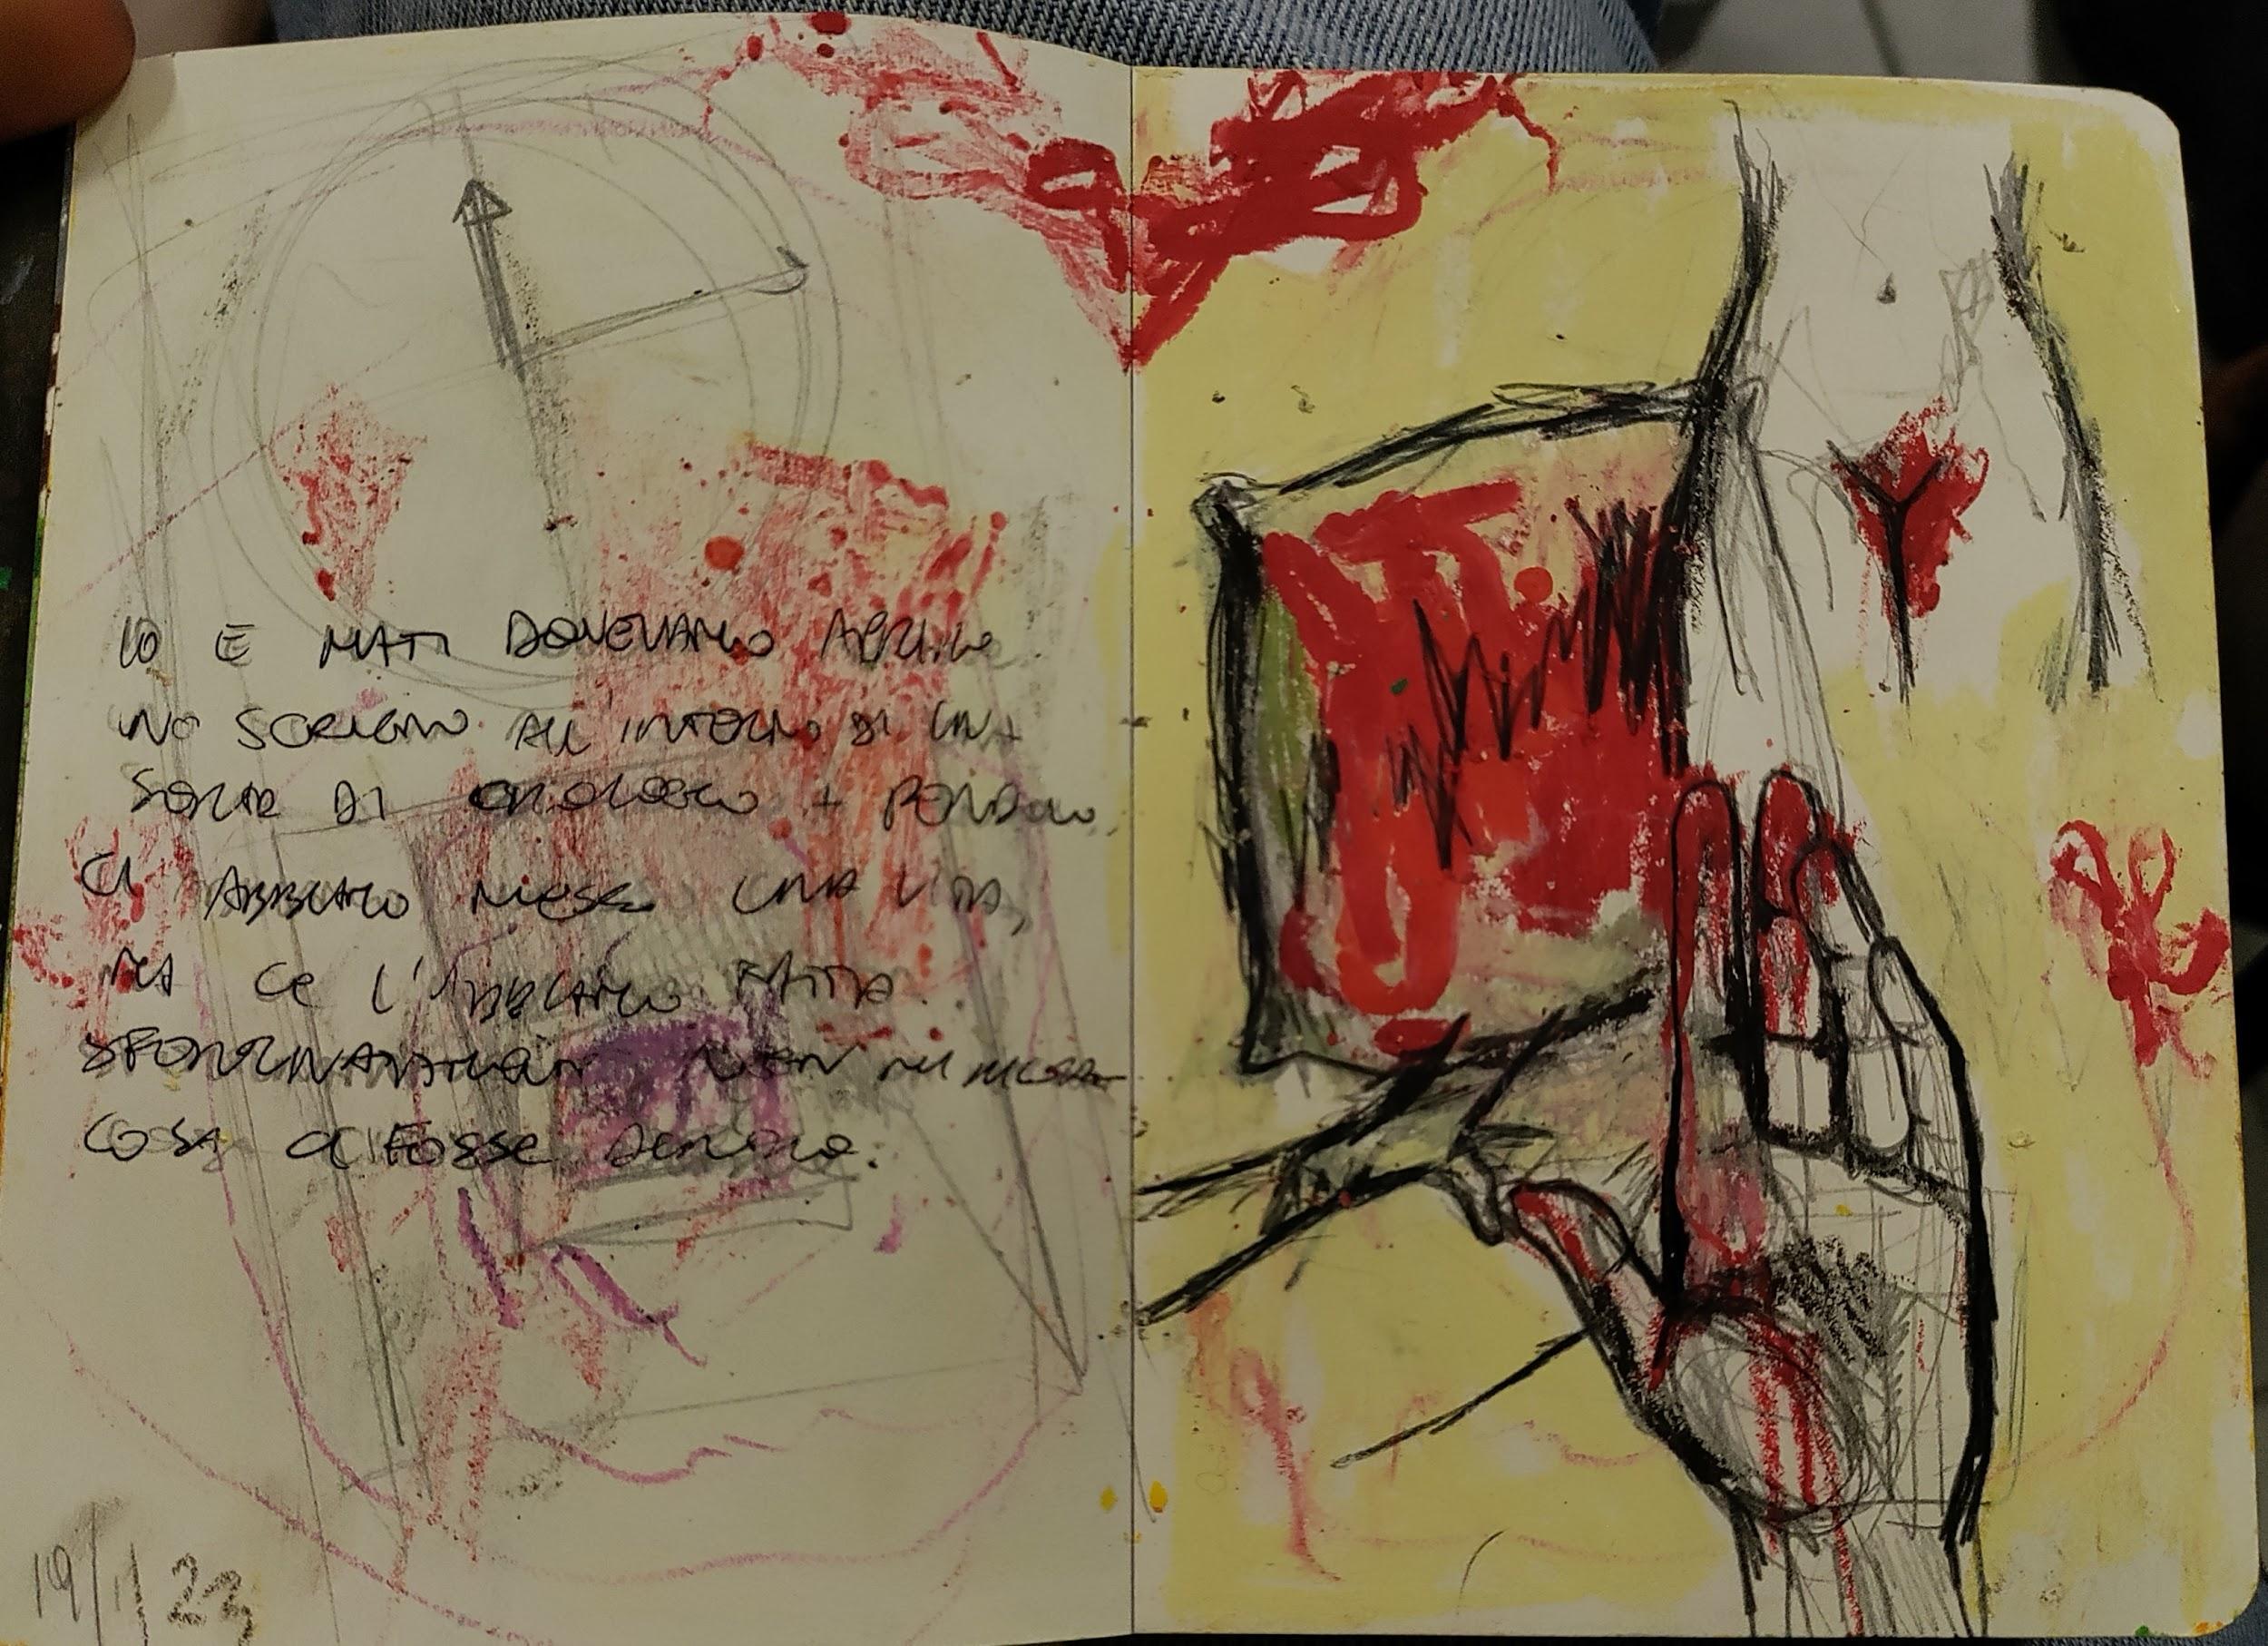 IO E MATI DOVEVAMO APRIRE
UNO SCRIGNO ALL'INTERNO DI UNA
SORTA DI OROLOGIO + PENDOLO
CI ABBIAMO MESSO UNA VITA,
MA CE L'ABBIAMO FATTA.
SFORTUNATAMENTE NON MI RICORDO
COSA CI FOSSE DENTRO.
19/1/23